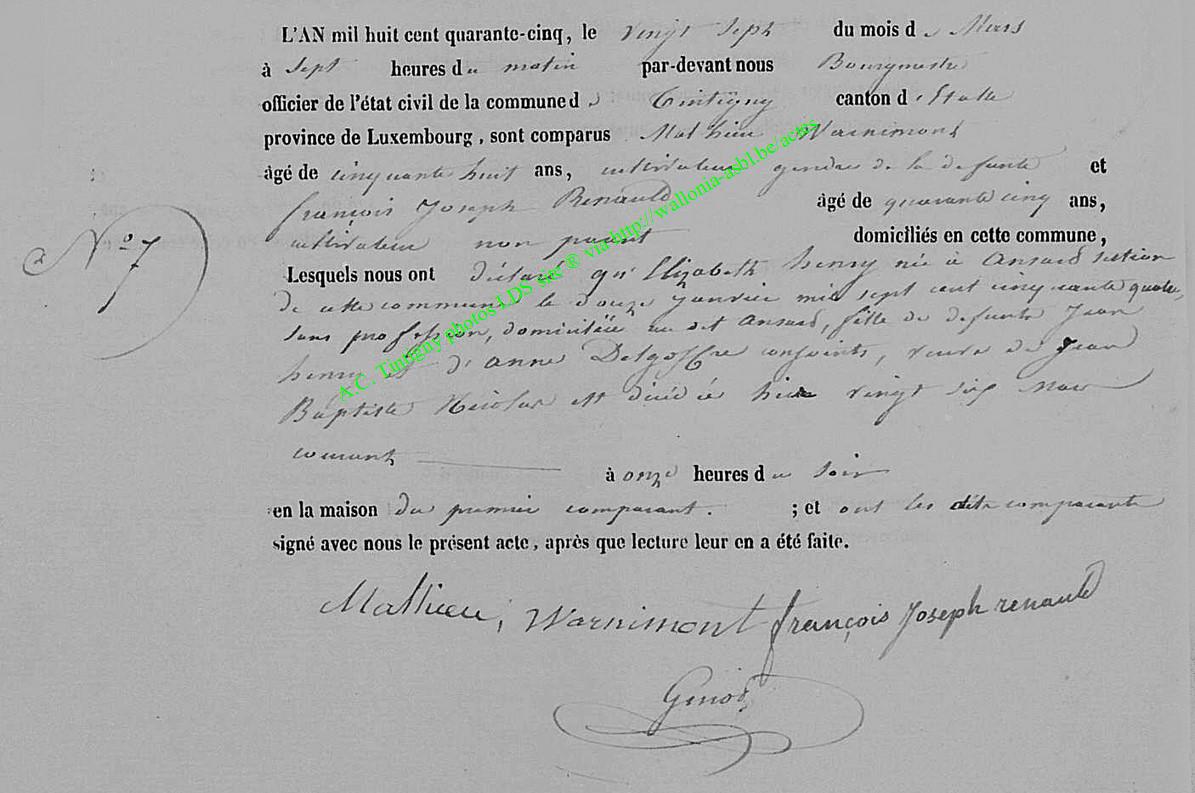 L'AN mil huit cent quarante-cinq, le vingt sept du mois de Mars
à sept heures du matin par-devant nous Bourgmestre
officier de l'état civil de la commune de Tintigny canton d'Etalle
province de Luxembourg, sont comparus Mathieu Warnimont
âgé de cinquante huit ans, cultivateur gendre de la defunte et
françois Joseph Renauld âgé de quarante cinq ans,
cultivateur non parent domiciliés en cette commune,
N° 7
Lesquels nous ont déclaré qu'Elizabeth henry née à Ansard section
de cette commune le douze Janvier mil sept cent cinquante quatre,
sans profession, domiciliée au dit Ansard, fille de defunts Jean
henry et d'anne Delgoffre conjoints, veuve de Jean
Baptiste Nicolas est décédée hier vingt six mars
courant à onze heures du soir
en la maison du premier comparant. ; et ont les dits comparants
signé avec nous le présent acte, après que lecture leur en a été faite.
Mathieu, Warnimont françois Joseph renauld
A.C. Tintigny photos LDS site ® via http://wallonia-asbl.be/actes